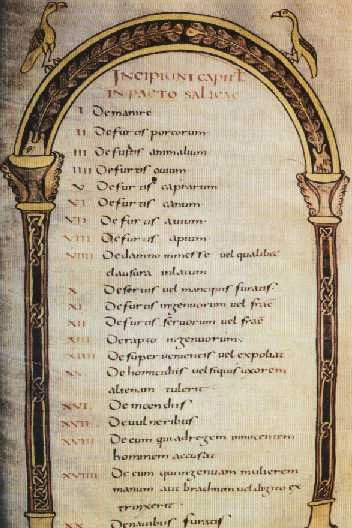 INCIPIUNT CAPITŁ
IN PACTO SALICAE
I De manire
II De furtis porcorum
III De furtis animalium
IIII De furtis ovium
V De furtis caprarum
VI De furtis canum
VII De furtis avium
VIII De furtis apium
VIIII De damno in messe vel qualibec
clausura inlatum
X De servis vel mancipiis furatis
XI De furtis ingenuorum vel frac
XII De furtis servorum vel frac
XIII De rapto ingenuorum
XIIII De superventis vel expoliat
XV De homicidiis vel si quis uxorem
alienam tulerit
XVI De incendiis
XVII De vulneribus
XVIII De eum qui ad regem innocentem
hominem accusat
XVIIII De eum qui ingenuam mulierem
manum aut brachium vel digito ex
trinxerit
XX De navibus furatis